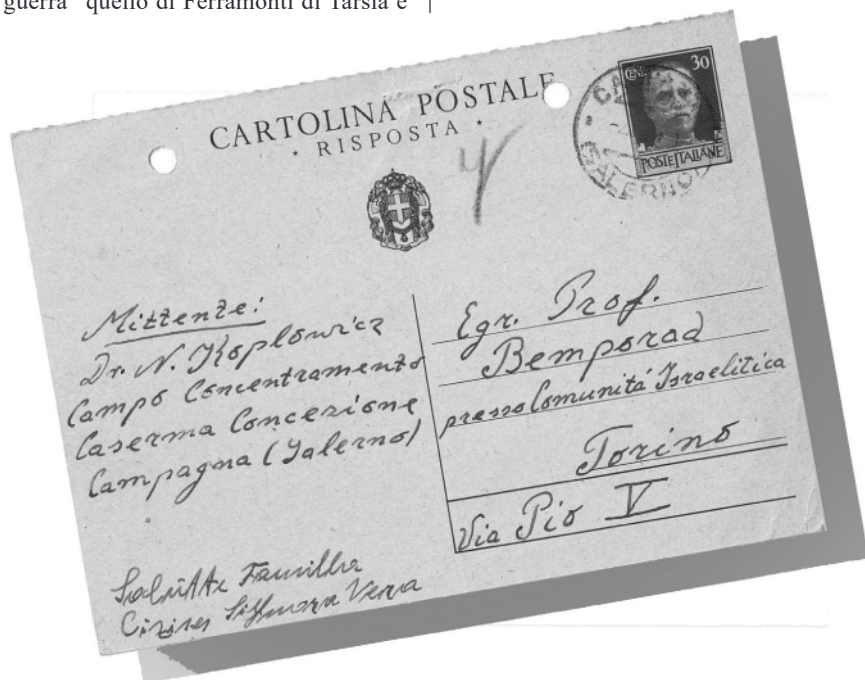 guerra" quello di Ferramonti di Tarsia e
CARTOLINA POSTALE
RISPOSTA
CENT. 30
POSTE ITALIANE
SALERNO
Mittente:
Dr. N. Koplowicz
Campo Concentramento
Caserma Concezione
Campagna (Salerno)
Egr. Prof.
Bemporad
presso Comunitá Israelitica
Torino
Via Pio V
Famillia
Vera